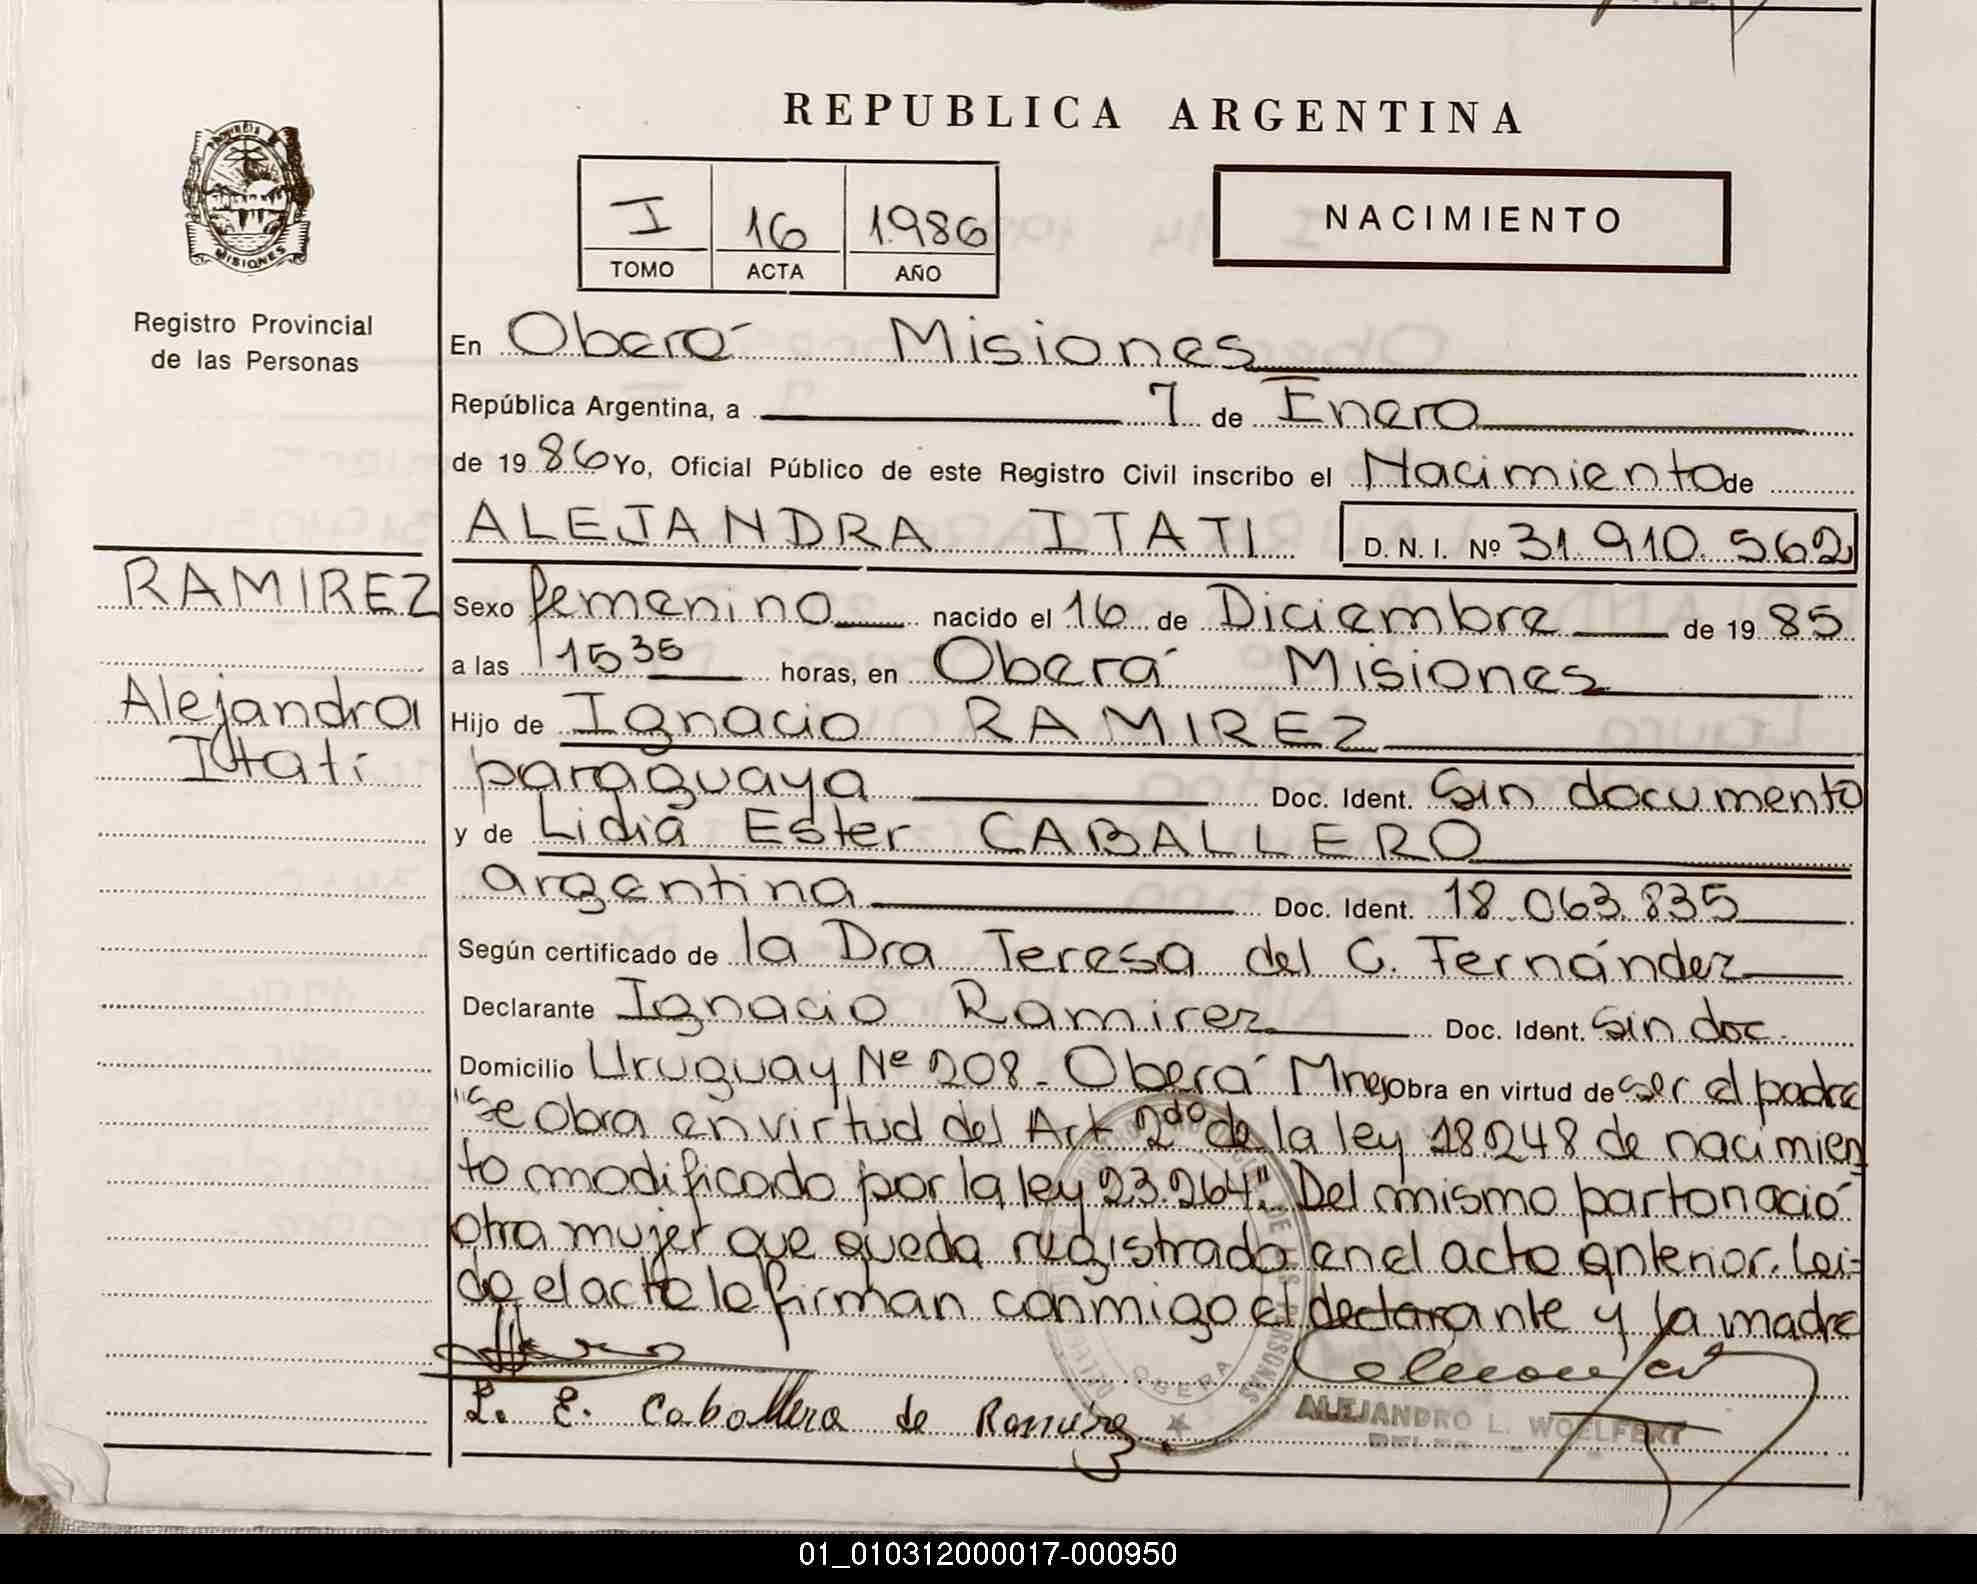 REPUBLICA ARGENTINA
MISIONES
Registro Provincial
de las Personas
I 16 1986
TOMO ACTA AÑO
NACIMIENTO
En Oberá Misiones
República Argentina, a 7 de Enero
de 1986 Yo, Oficial Público de este Registro Civil inscribo el Nacimiento de
ALEJANDRA ITATI D.N.I. Nº 31.910.562
RAMIREZ
Alejandra
Itatí
Sexo femenino nacido el 16 de Diciembre de 1985
a las 15 35 horas, en Oberá Misiones
Hijo de Ignacio RAMIREZ
paraguaya Doc. Ident. Sin documento
y de Lidia Ester CABALLERO
argentina Doc. Ident. 18.063.835
Según certificado de la Dra Teresa del C. Fernández
Declarante Ignacio Ramirez Doc. Ident. Sin doc.
Domicilio Uruguay Nº 208 - Oberá Mnes obra en virtud de ser el padre
"Se obra en virtud del Art 2do de la ley 18248 de nacimien
to modificado por la ley 23.264". Del mismo parto nació
otra mujer que queda registrada en el acta anterior. Lei=
da el acta la firman conmigo el declarante y la madre
L. E. Caballero de Ramirez.
OBERA
ALEJANDRO L. WOELFERT
01_010312000017-000950